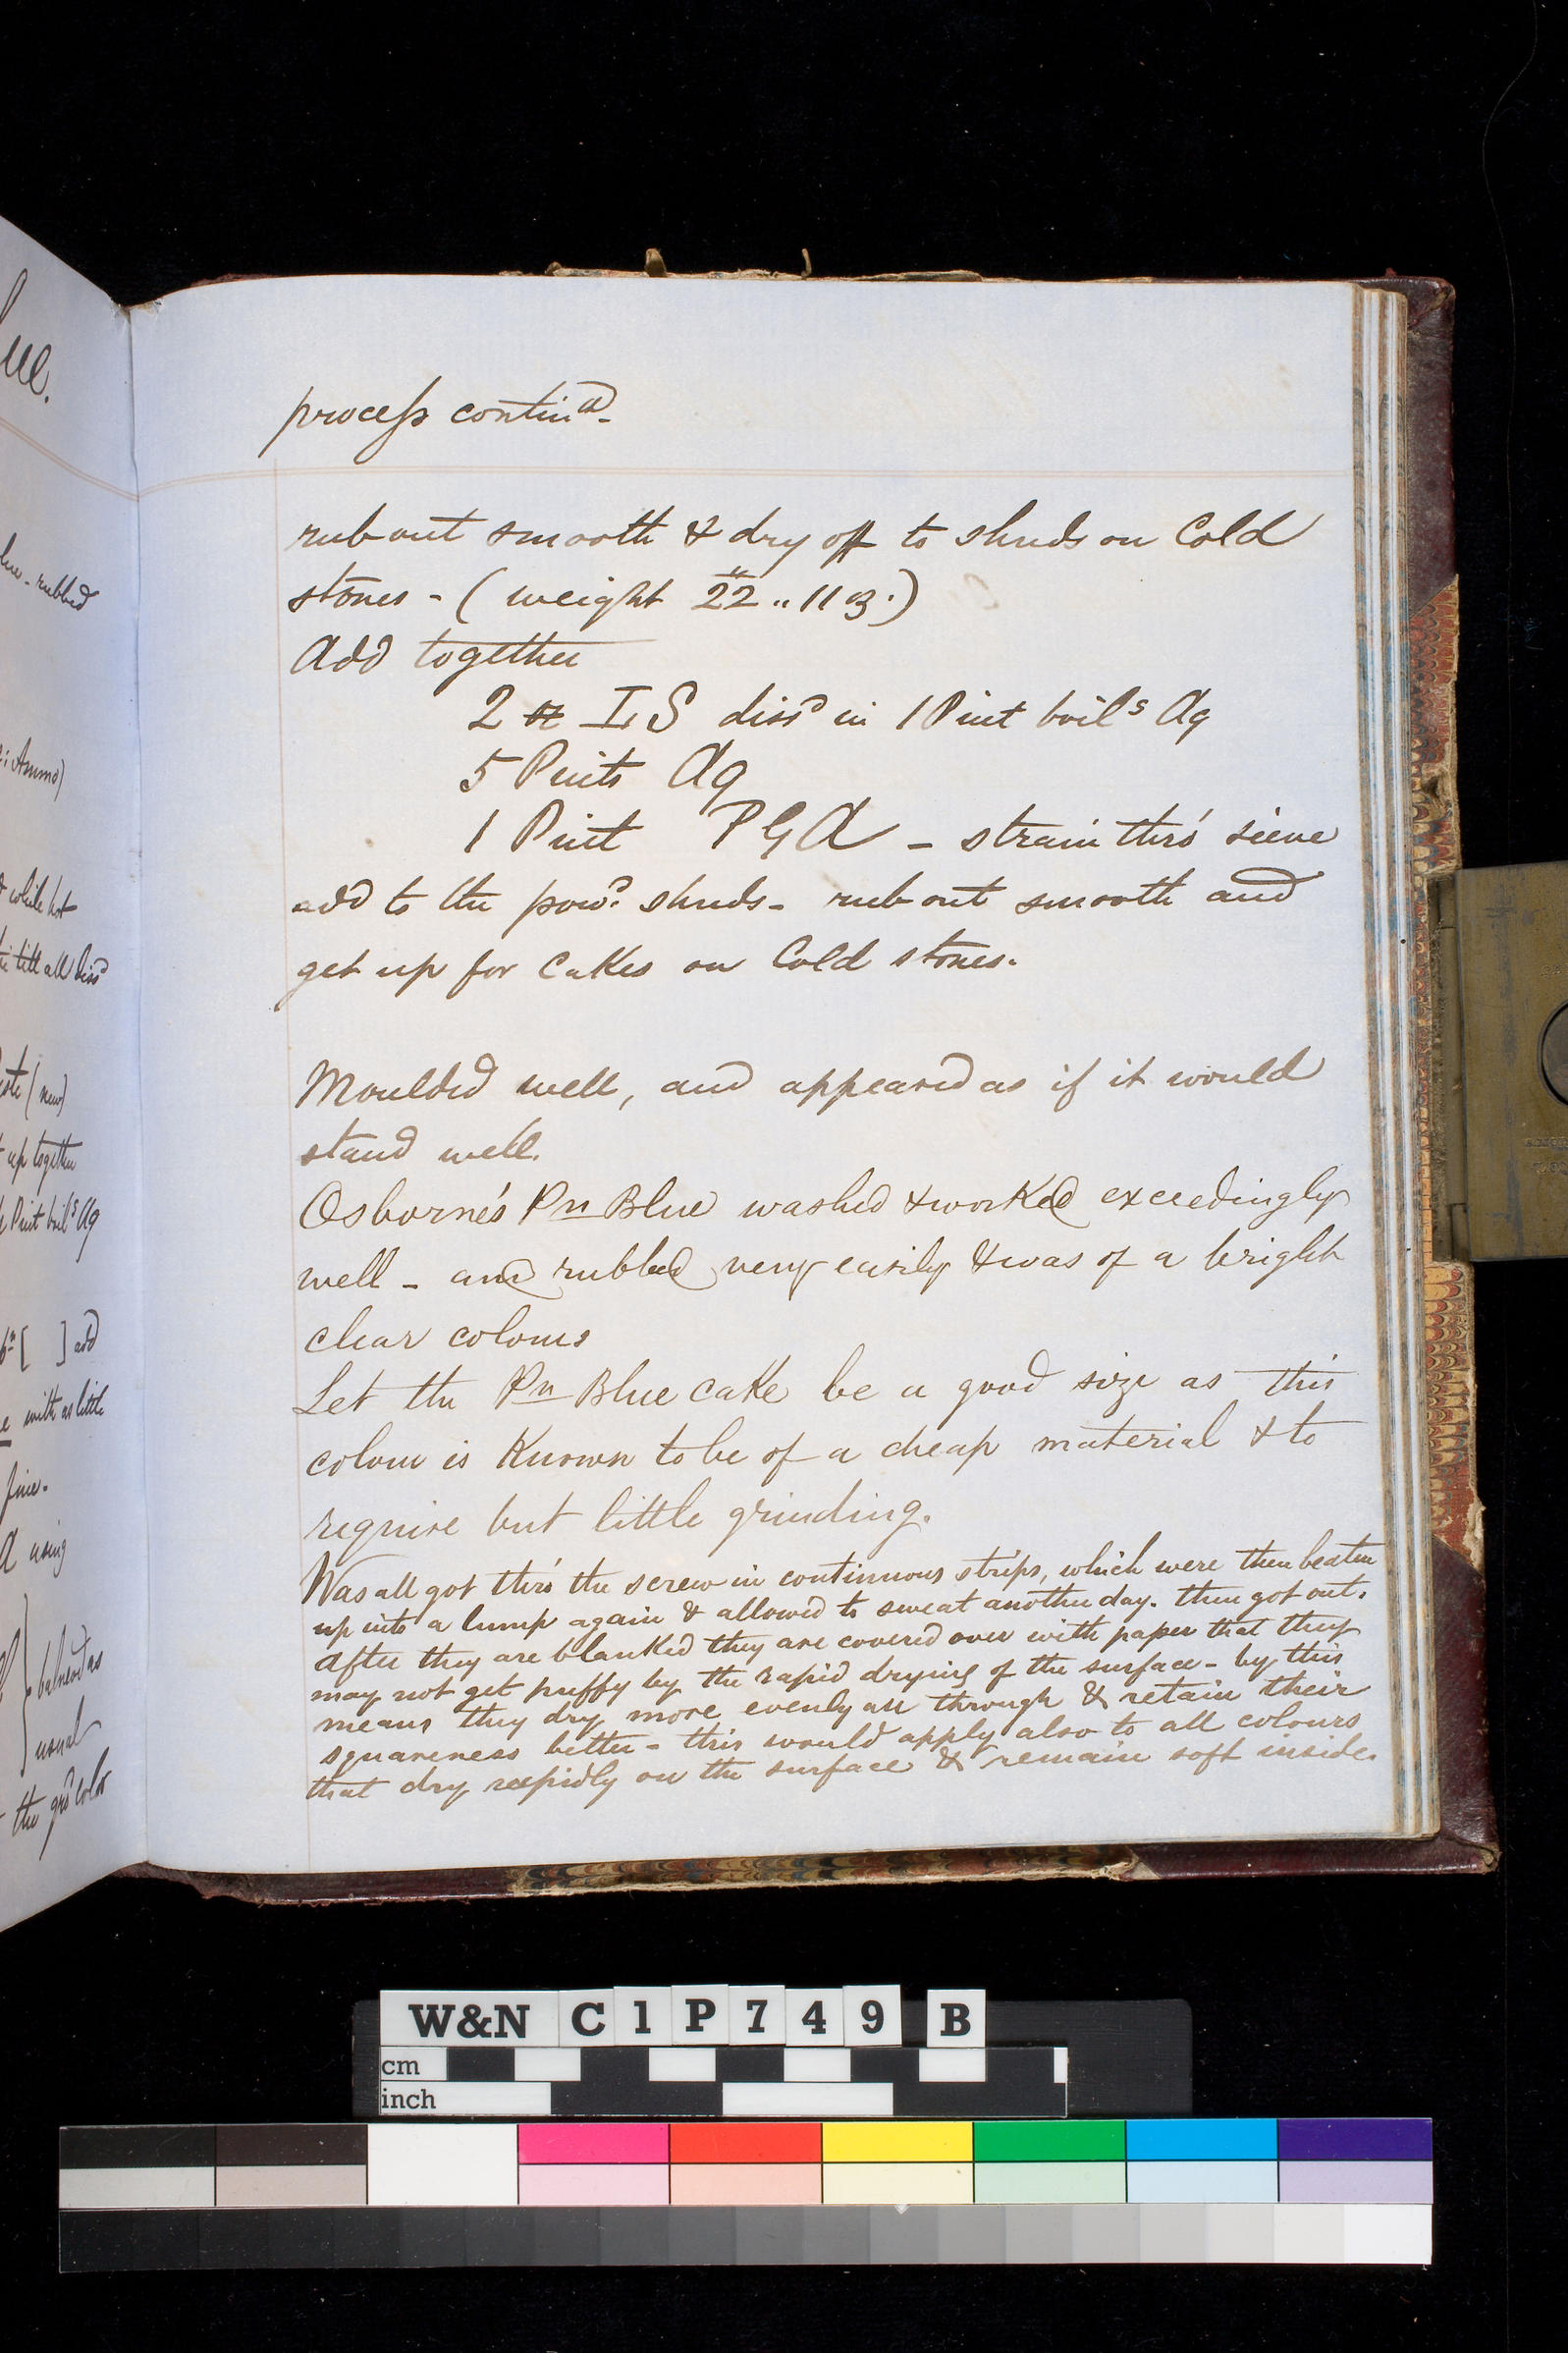 ue.
lue - rubbed
Ammo)
& while hot
till all diss^d
(new)
up together
Pint boil^g Aq
[ ] add
with as little
fine.
A using
balneod as
usual
the gr^d color
process contin^d -
rub out smooth & dry off to shuds on Cold
stones - ( weight 22 " 11 ℥. )
Add together
2 oz L S diss^d in 1 Pint boil^g Aq
5 Pints Aq
1 Pint P G A - strain thro' sieve
add to the pow^d shuds - rub out smooth and
get up for Cakes on Cold stones.
Moulded well, and appeared as if it would
stand well.
Osborne's Pn Blue washed & worked exceedingly
well - and rubbed very easily & was of a bright
clear colour
Let the Pn Blue cake be a good size as this
colour is Known to be of a cheap material & to
require but little grinding.
Was all got thro' the screw in continuous strips, which were then beaten
up into a lump again & allowed to sweat another day. then got out.
after they are blanked they are covered over with paper that they
may not get puffy by the rapid drying of the surface - by this
means they dry more evenly all through & retain their
squareness better - this would apply also to all colours
that dry rapidly on the surface & remain soft inside.
W&N C 1 P 7 4 9 B
cm
inch